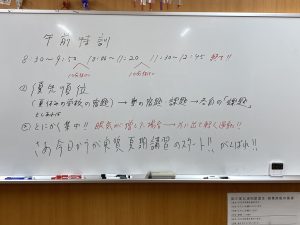 午前特訓
8:30～9:50 10:00～11:20 11:30～12:45 終了!!
10分休み 10分休み
①優先順位
(夏休みの学校の宿題) → 塾の宿題・課題 → 各自の「課題」
②とにかく集中!! 眠気が増した場合 → 外に出て軽く運動!!
さあ今日からが実質夏期講習のスタート!! がんばれ!!